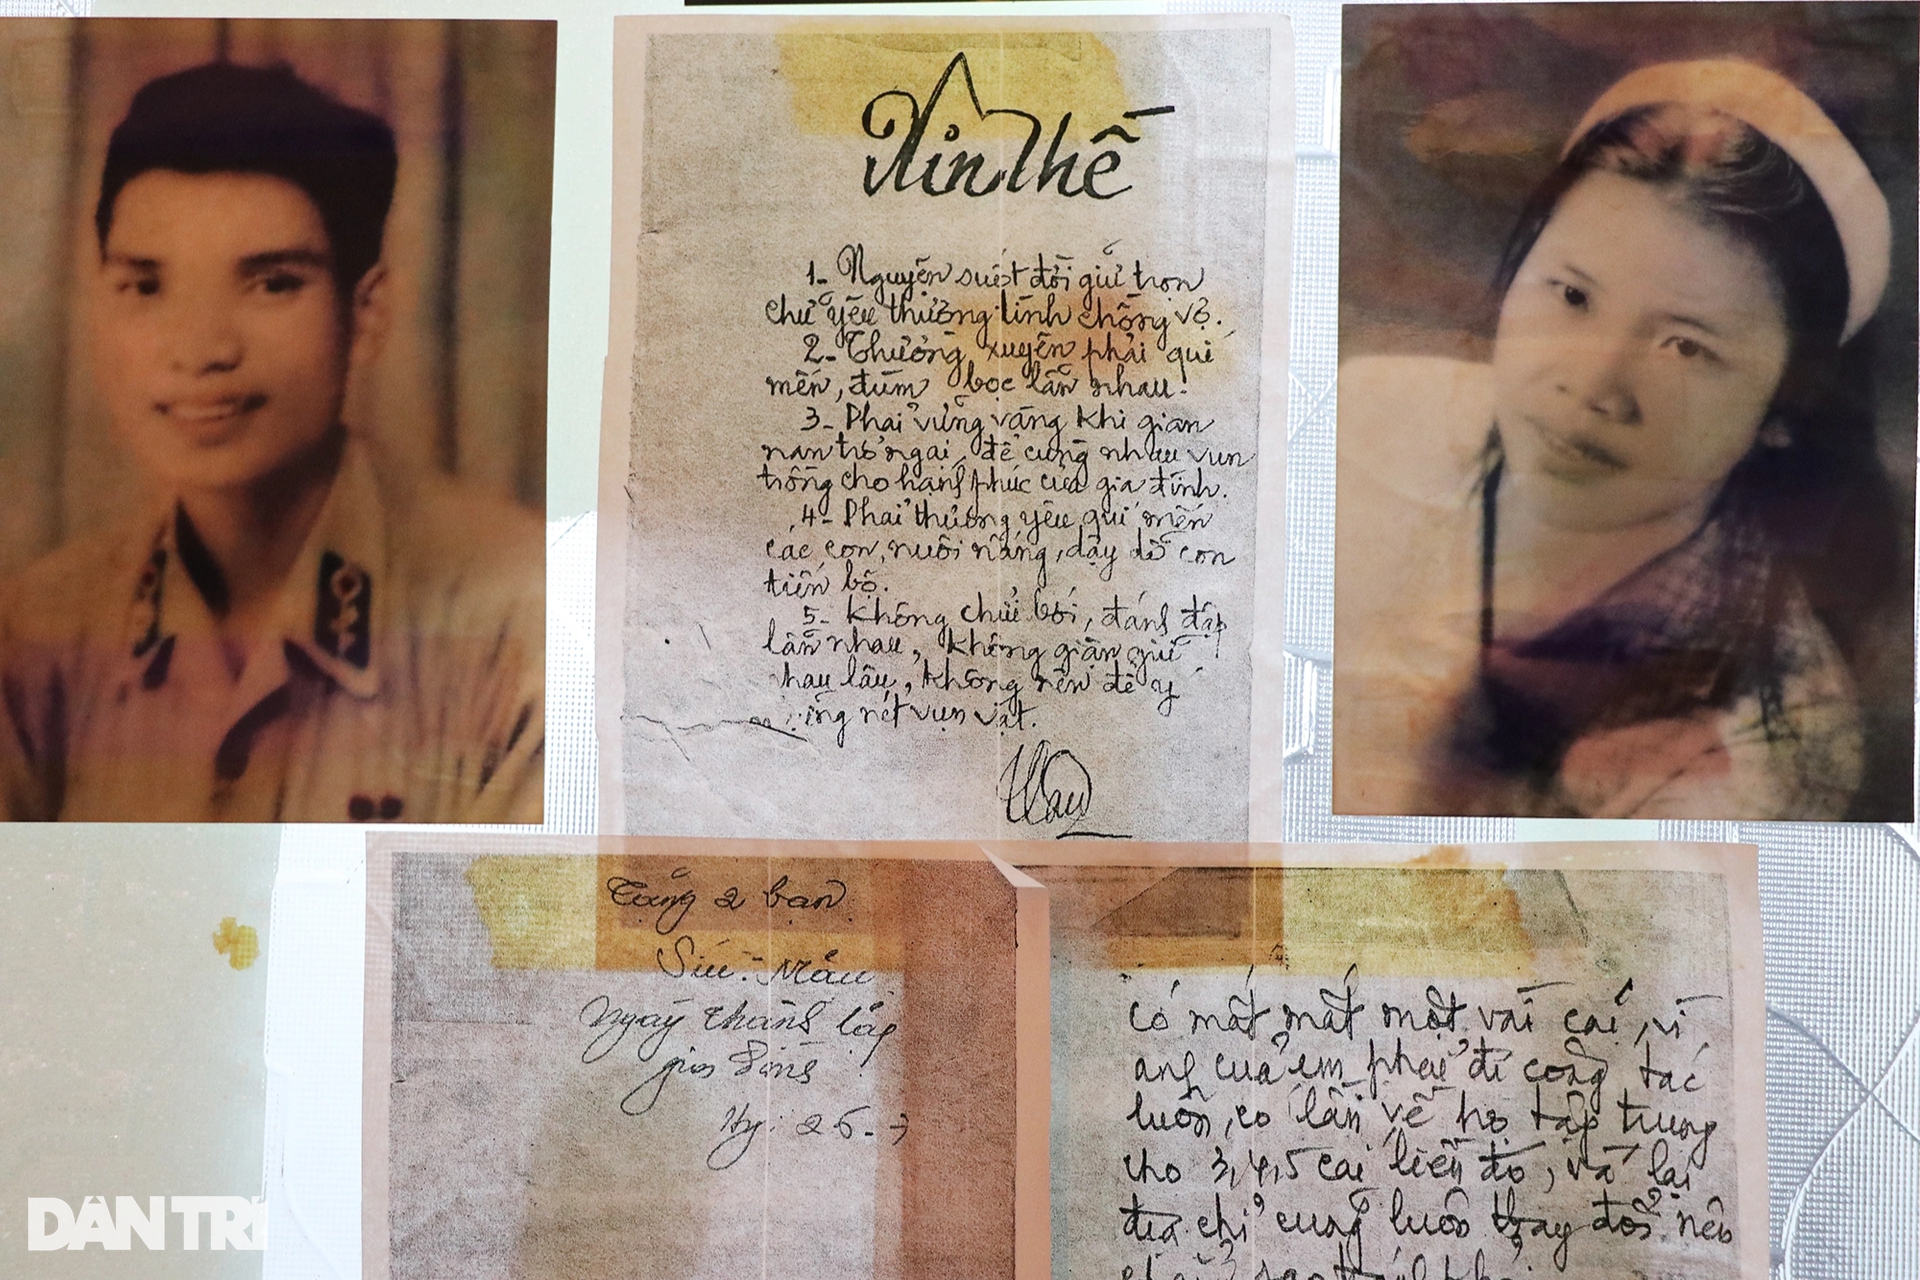 Xin Thề
1- Nguyện suốt đời giữ trọn
chữ yêu thương tình chồng vợ.
2- Thường xuyên phải quí
mến, đùm bọc lẫn nhau.
3- Phải vững vàng khi gian
nan trở ngại, để cùng nhau vun
trồng cho hạnh phúc của gia đình.
4- Phải thương yêu quí mến
các con, nuôi nấng, dậy dỗ con
tiến bộ.
5- Không chửi bới, đánh đập
lẫn nhau, không giận giữ
nhau lâu, không nên để ý
nét vụn vặt.
Tặng 2 bạn
Sửu - Mẫu
Ngày thành lập
gia đình
Ng: 26-7
có mất mát một vài cái, vì
anh của em phải đi công tác
luôn, có lần về họ tập trung
cho 3,4,5 cái liền đó, và lại
địa chỉ cũng luôn thay đổi nên
DÂN TRÍ